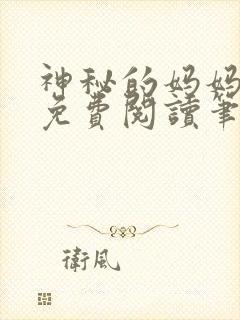 神秘的妈妈
免費閱讀筆
衛風